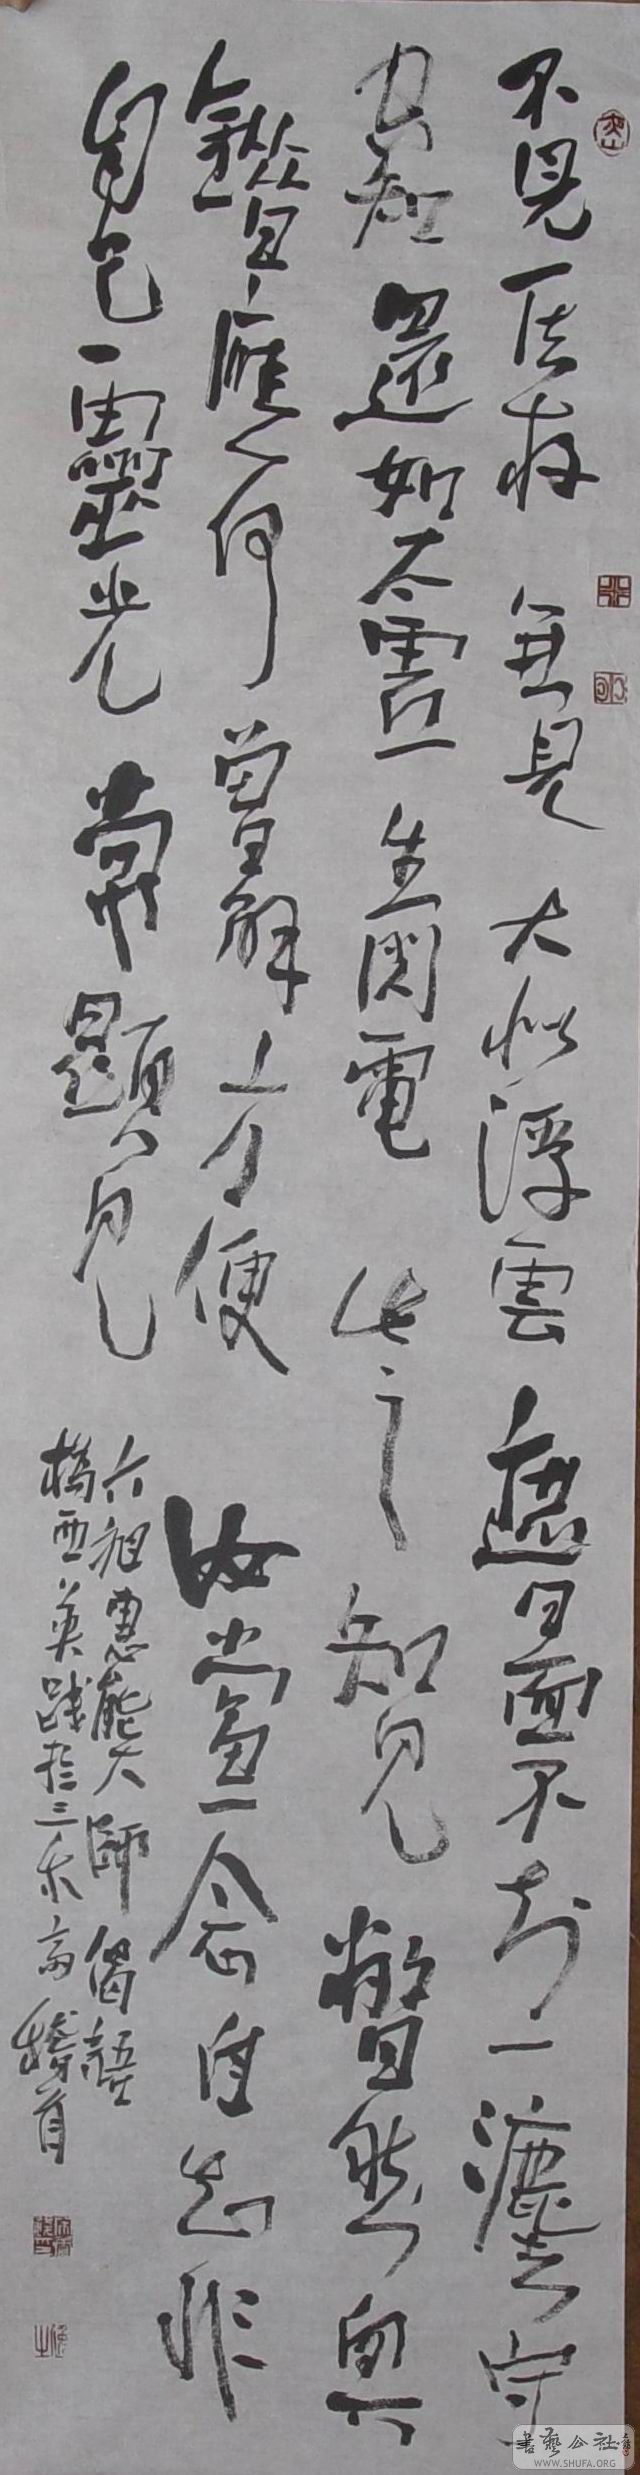 不見一法存無見大似浮雲遮日面不知一法守
空知還如太虛生閃電此之知見瞥然興
錯認何曾解方便汝當一念自知非
自己靈光常顯見
六祖惠能大師偈語
橋西英踐於三齋稽首
書藝公社
WWW.SHUFA.ORG